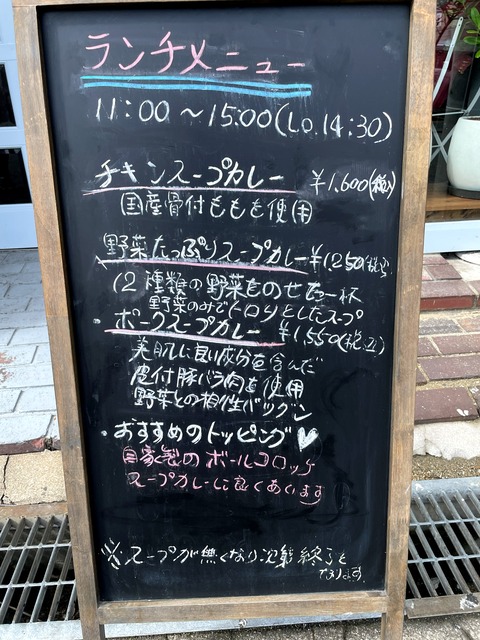 ランチメニュー
11:00 ～15:00(Lo.14:30)
チキンスープカレー ¥1,600(税込)
国産骨付ももを使用
野菜たっぷりスープカレー ¥1,250(税込)
12種類の野菜ものせた一杯
野菜のみでトロリとしたスープ
・ポークスープカレー ¥1,550(税込)
美肌に良い成分を含んだ
皮付豚バラ肉を使用
野菜との相性バツグン
・おすすめのトッピング♡
自家製のポールコロッケ
スープカレーに良くあいます
※スープが無くなり次第終了と
なります。